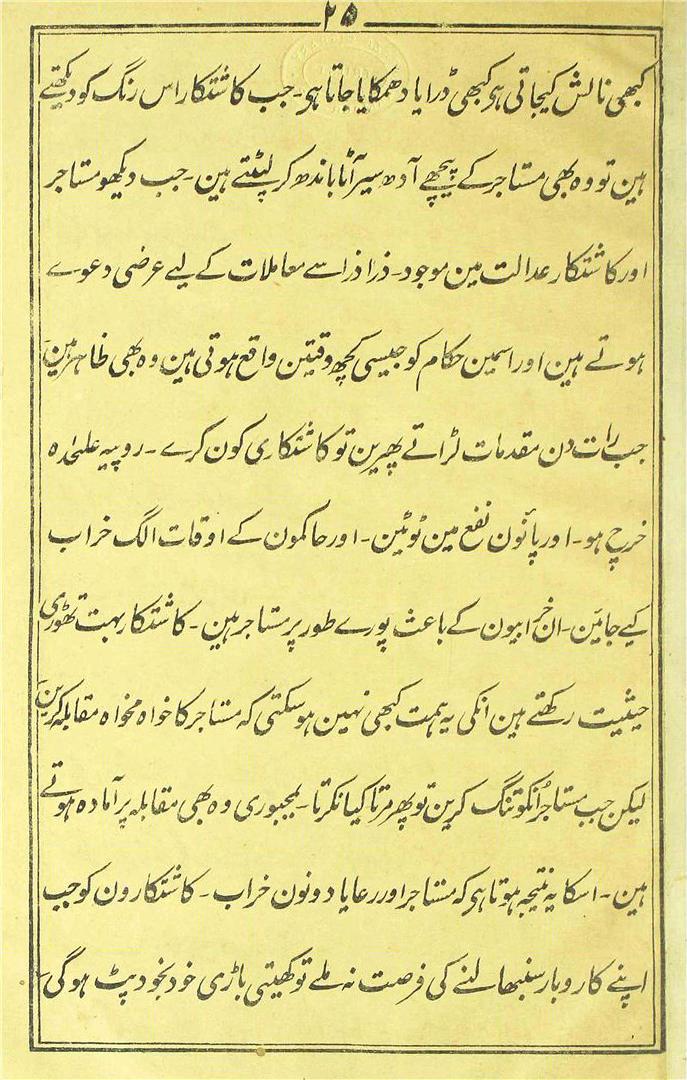 ۲۵
کبھی نالش کیجاتی ہو کبھی ڈرایا دھمکایا جاتا ہو۔ جب کاشتکار اس رنگ کو دیکھتے
ہین تو وہ بھی مستاجر کے پیچھے آدھ سیر آٹا باندھ کر لپٹتے ہین۔ جب دیکھو مستاجر
اور کاشتکار عدالت مین موجود۔ ذرا ذرا سے معاملات کے لیے عرضی دعوے
ہوتے ہین اور اسمین حکام کو جیسی کچھ وقیتن واقع ہوتی ہین وہ بھی ظاہر ہین۔
جب رات دن مقدمات لڑاتے پھرین تو کاشتکاری کون کرے۔ روپیہ علیٰحدہ
خرچ ہو۔ اور پانْون نفع مین ٹوٹین۔ اور حاکمون کے اوقات الگ خراب
کیے جائین۔ ان خرابیون کے باعث پورے طور پر مستاجر ہین۔ کاشتکار بہت تھوڑی
حیثیت رکھتے ہین انکی یہ ہمت کبھی نہین ہو سکتی کہ مستاجر کا خواہ مخواہ مقابلہ کرین
لیکن جب مستاجر اُنکو تنگ کرین تو پھر مرتا کیا نکرتا۔ بمجبوری وہ بھی مقابلہ پر آمادہ ہوتے
ہین۔ اسکا یہ نتیجہ ہوتا ہو کہ مستاجر اور رعایا دونون خراب۔ کاشتکارون کو جب
اپنے کاروبار سنبھالنے کی فرصت نہ ملے تو کھیتی باڑی خود بخود پٹ ہوگی۔